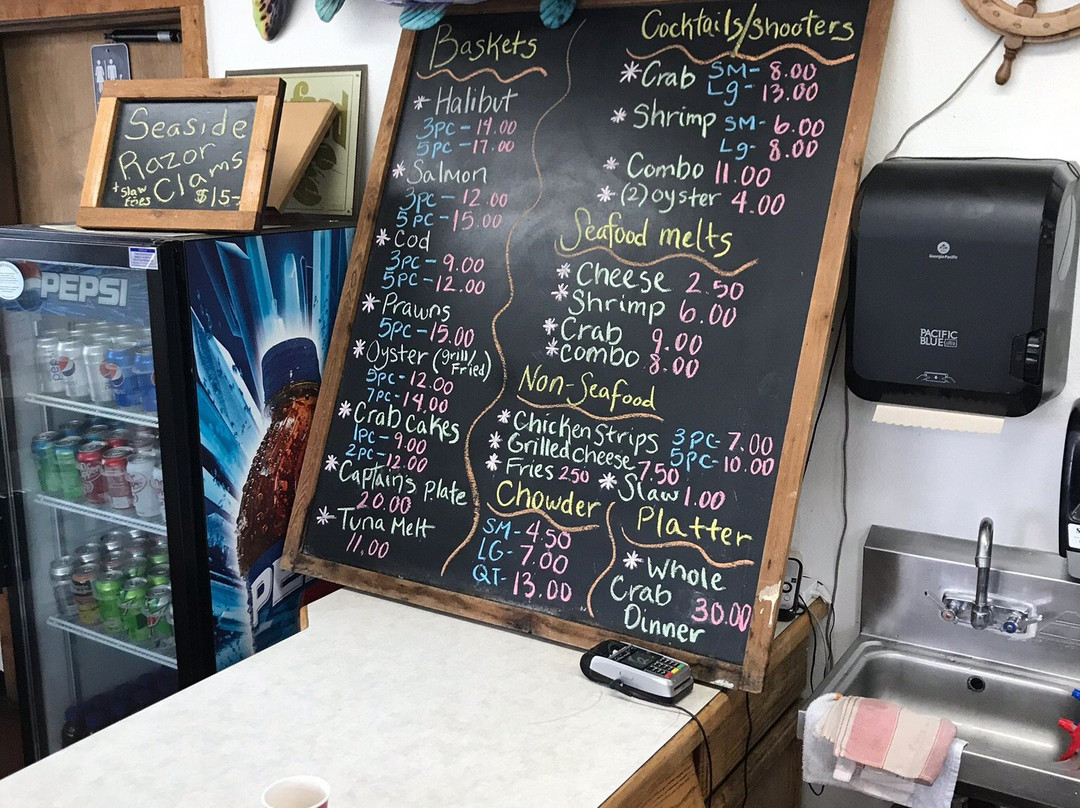 Seaside
Razor
Clams
+ slaw
fries
$15-
PEPSI
Baskets
* Halibut
3pc - 14.00
5pc - 17.00
* Salmon
3pc - 12.00
5pc - 15.00
* Cod
3pc - 9.00
5pc - 12.00
* Prawns
5pc - 15.00
* Oyster (grill/Fried)
5pc - 12.00
7pc - 14.00
* Crab Cakes
1pc - 9.00
2pc - 12.00
* Captains Plate
20.00
* Tuna Melt
11.00
Cocktails/shooters
* Crab SM- 8.00
Lg- 13.00
* Shrimp SM- 6.00
Lg- 8.00
* Combo 11.00
* (2) oyster 4.00
Seafood melts
* Cheese 2.50
* Shrimp 6.00
* Crab 9.00
* combo 8.00
Non-Seafood
* Chicken Strips 3PC- 7.00
5PC- 10.00
* Grilled cheese 7.50
* Fries 2.50 * Slaw 1.00
Chowder
SM- 4.50
LG- 7.00
QT- 13.00
Platter
* Whole
Crab
Dinner 30.00
Georgia-Pacific
PACIFIC
BLUE ultra